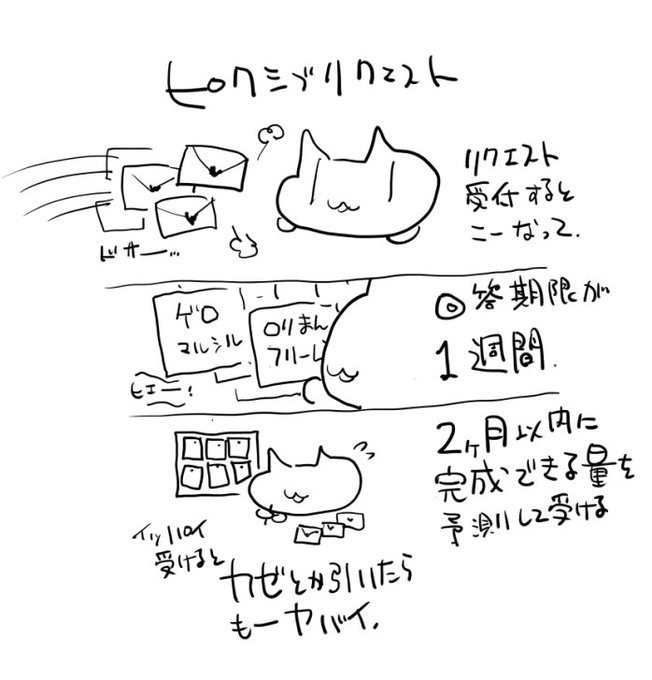 ピクシブリクエスト
リクエスト
受付すると
こーなって、
ドサー…
ゲロ
マルシル
ロリまん
フリーレ
ヒエー!
回答期限が
1週間.
2ヶ月以内に
完成できる量を
予測して受ける
イッパイ
受けると
カゼとか引いたら
もーヤバイ.